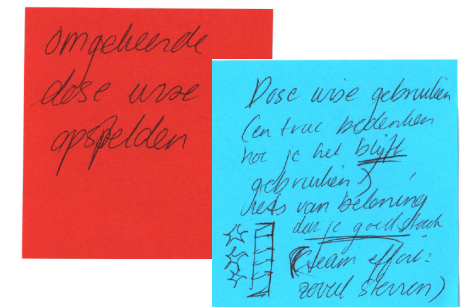 omgekeerde
dose wise
opspelden
Dose wise gebruiken
(en truc bedenken
hoe je het blijft
gebruiken)
iets van beloning
dat je goed
(team effort:
zoveel sterren)